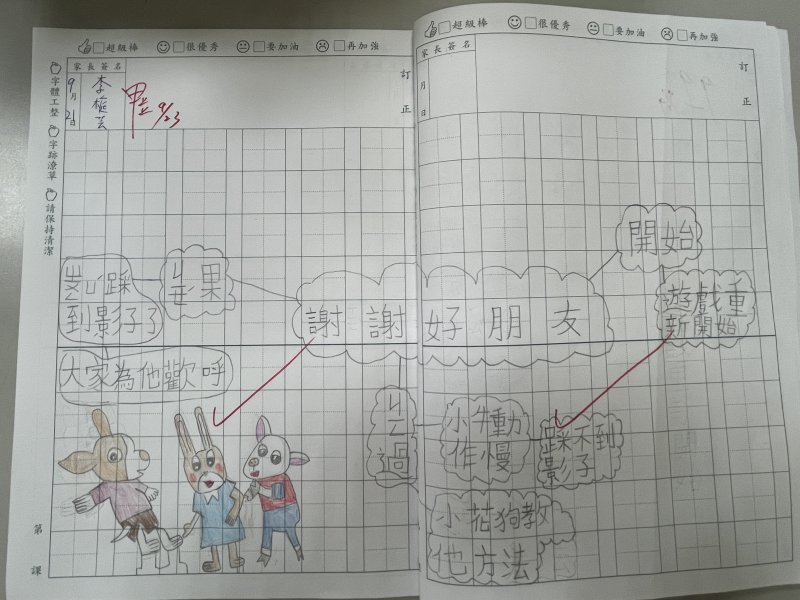 超級棒 很優秀 要加油 再加強
超級棒 很優秀 要加油 再加強
家長簽名
9月21日
訂正
甲上 9/23
家長簽名
月 日
訂正
字體工整
字跡潦草
請保持清潔
謝謝好朋友
開始
遊戲重
新開始
過
小牛動
作慢
踩不到
影子
小花狗教
他方法
果
踩
到影子了
大家為他歡呼
第 課